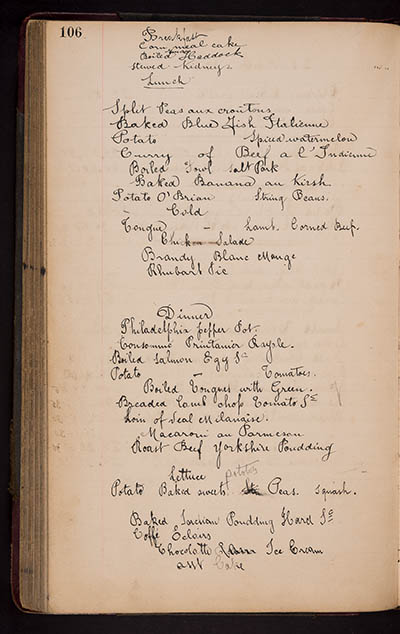 106
Breakfast
Corn meal cake
Boiled Haddock
stewed Kidneys
Lunch
Split Peas aux croutons
Baked Blue Fish Italienne
Potato Spiced watermelon
Curry of Beef a l'Indienne
Boiled Fowl salt Pork
Baked Banana au Kirsh
Potato O'Brian String Beans.
- Cold
Tongue - Lamb. Corned Beef.
Chicken Salade
Brandy Blanc Monge
Rhubart Pie
Dinner
Philadelphia pepper Pot.
Consommé Printanier Royale.
Boiled Salmon Egg Sce
Potato - Tomatoes.
Boiled Tongues with Green.
Breaded Lamb chop Tomato Sce
Loin of Veal Milanaise.
Macaroni au Parmesan
Roast Beef Yorkshire Poudding
Lettuce potatoes
Potato Baked sweet Peas. squash.
Baked Indian Poudding Hard Sce
Coffe Eclairs
Chocolatte Ice Cream
asst Cake